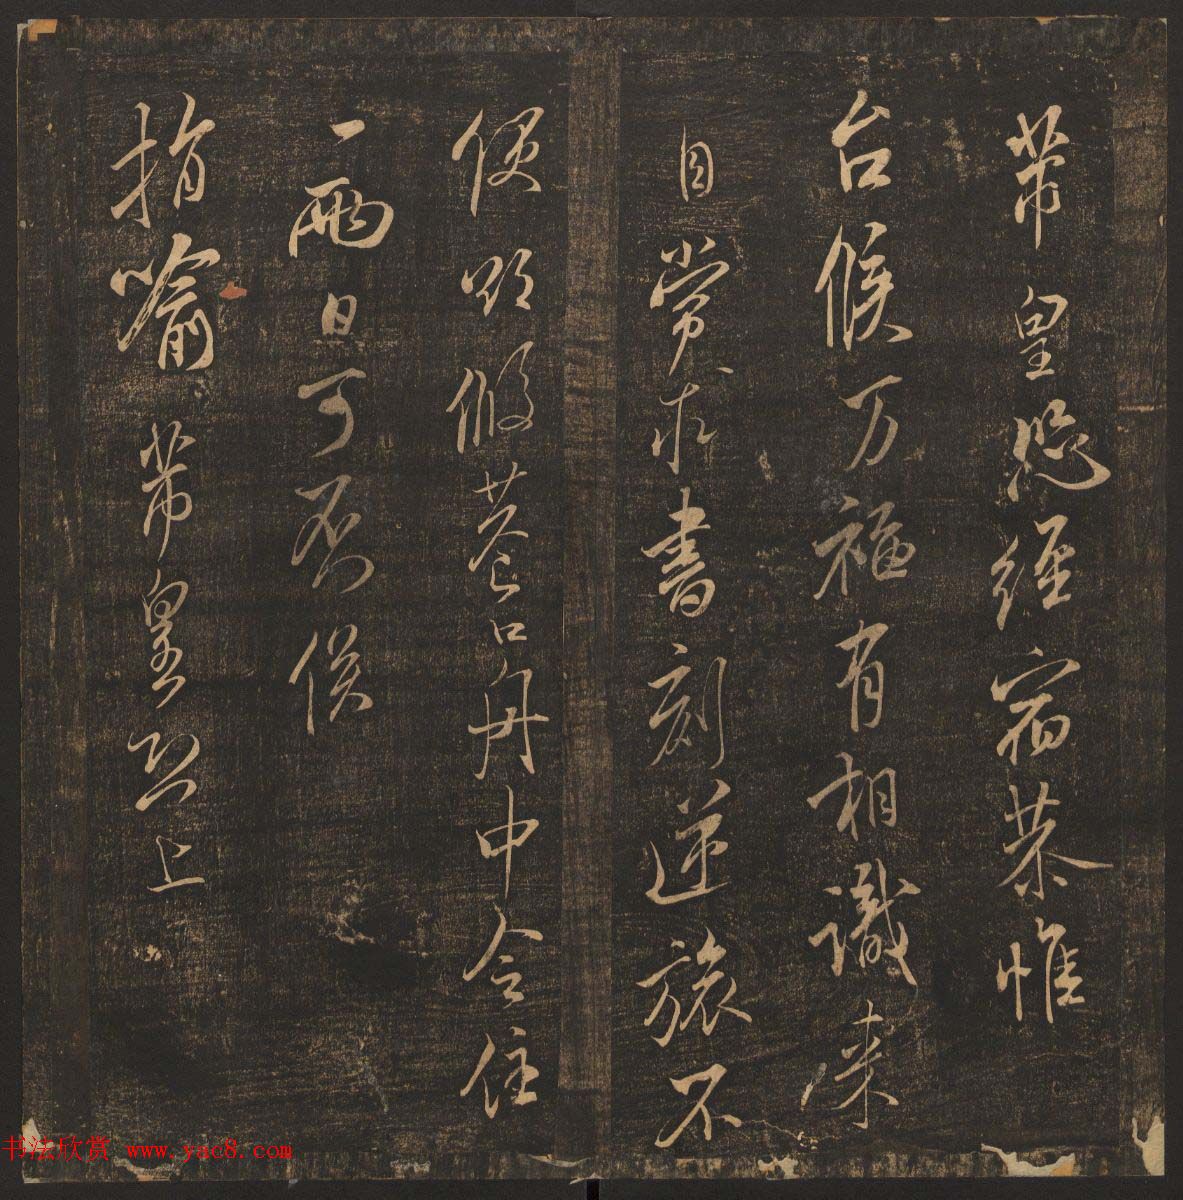 芾皇恐經宿恭惟
台候万福有相識来
自常求書刻逆旅不
便欲假口舟中令住
一兩日可否俟
指喻芾皇恐上
书法欣赏 www.yac8.com